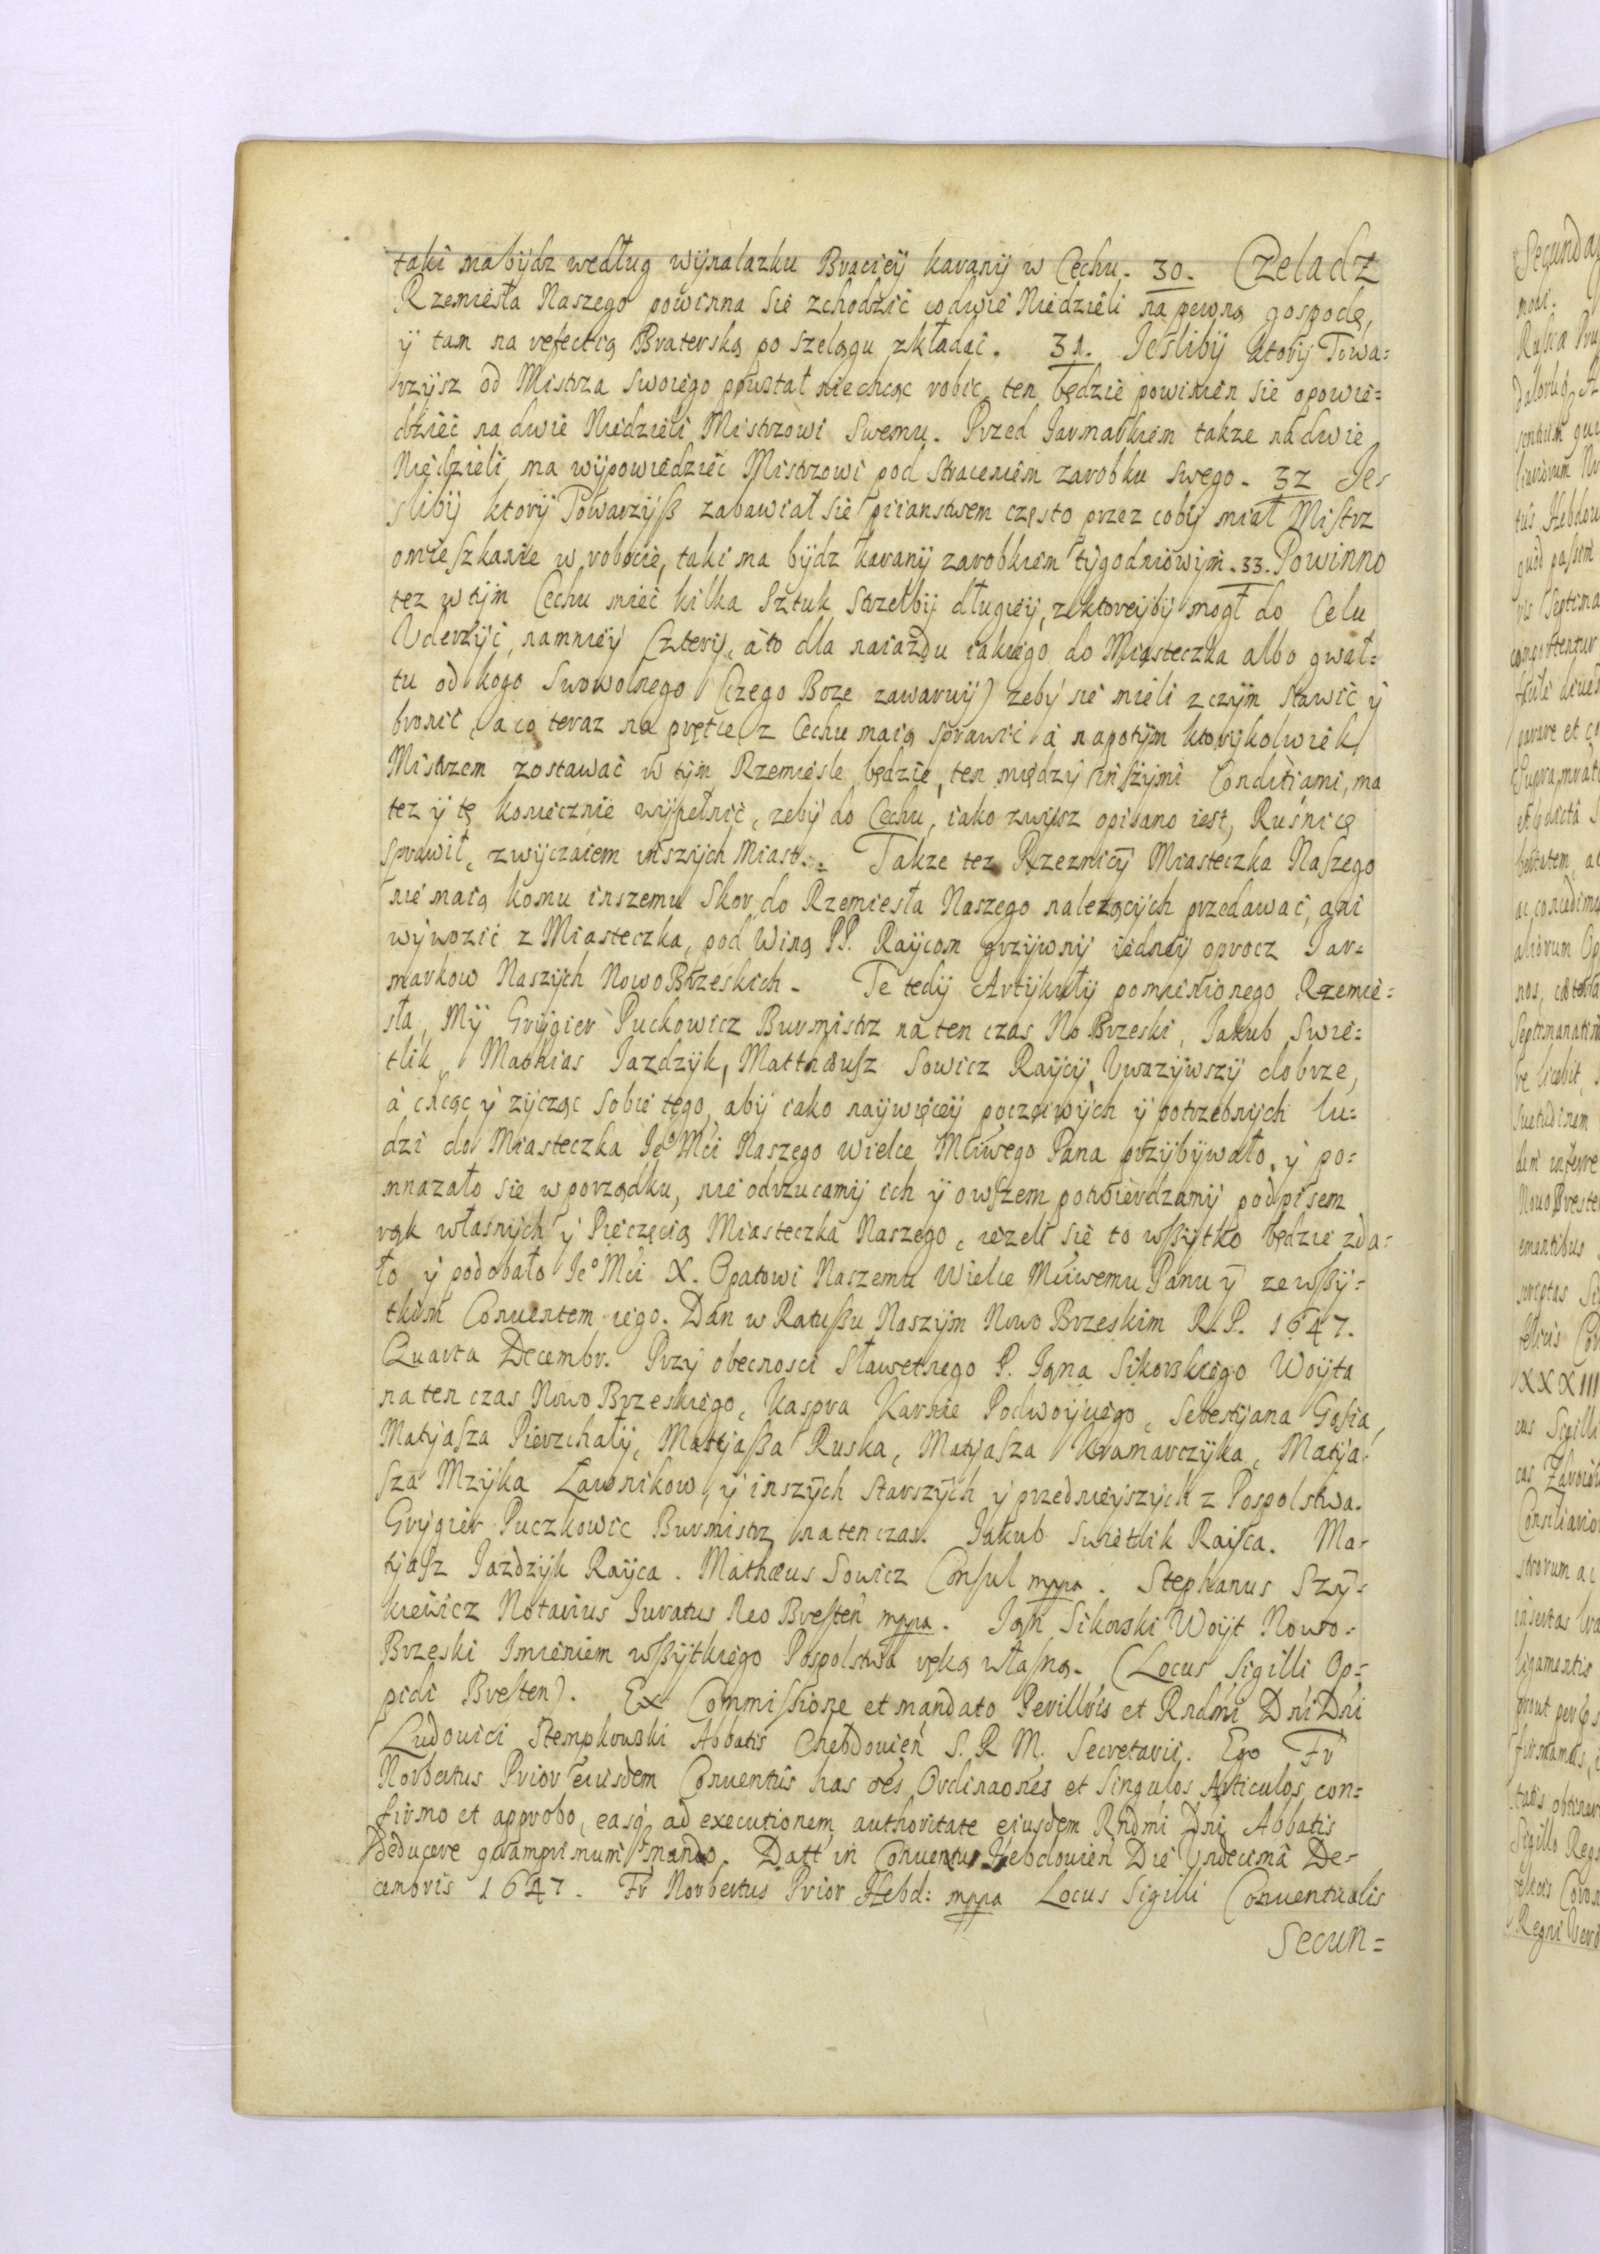 taki ma bydz według wynalazku Braciey karany w Cechu. 30. Czeladz
Rzemiesła Naszego powinna sie zchodzic co dwie Niedzieli na pewną gospodę,
y tam na refectią Braterską po szelągu zkładac. 31. Jesliby ktory Towa=
rzysz od Mistrza swoiego powstał niechcąc robic, ten będzie powinien sie opowie=
dziec na dwie Niedzieli Mistrzowi swemu. Przed Jarmarkiem takze na dwie
Niedzieli ma wypowiedziec Mistrzowi pod straceniem zarobku swego. 32 Je=
sliby ktory Towarzyß zabawiał sie piianstwem często przez coby miał Mistrz
omieszkanie w robocie, taki ma bydz karany zarobkiem tygodniowym. 33. Powinno
tez w tym Cechu miec kilka sztuk strzelby długiey, z ktoreyby mogł do Celu
Uderzyc, namniey Cztery, a to dla naiazdu iakiego do Miasteczka albo gwał=
tu od kogo swowolnego (Czego Boze zawaruy) zeby sie mieli z czym stawic y
bronic, a co teraz na prętce z Cechu maią sprawic a napotym ktorykolwiek
Mistrzem zostawac w tym Rzemiesle będzie, ten między inszymi Conditiami, ma
tez y tę koniecznie wypełnic, zeby do Cechu, iako zwysz opisano iest, Rusnicę
sprawił, zwyczaiem inszych Miast. Takze tez Rzeznicy Miasteczka Naszego
nie maią komu inszemu Skor do Rzemiesła Naszego nalezących przedawac, ani
wywozic z Miasteczka, pod Winą PP. Raycom grzywny iedney oprocz Jar=
markow Naszych NowoBrzeskich. Te tedy Artykuły pomienionego Rzemie=
sła, My Grygier Puckowicz Burmistrz na ten czas No Brzeski, Jakub Swie=
tlik, Mathias Jazdzyk, Mattheusz Sowicz Raycy, Uwazywszy dobrze,
a chcąc y zycząc sobie tego, aby iako naywięcey poczciwych y potrzebnych lu=
dzi do Miasteczka Jeº Mci Naszego Wielce Mciwego Pana przybywało, y po=
mnazało sie w porządku, nie odrzucamy ich y owszem potwierdzamy podpisem
rąk własnych y Pieczęcią Miasteczka Naszego, iezeli sie to wßytko będzie zda=
ło y podobało Jeº Mci X. Opatowi Naszemu Wielce Mciwemu Panu y ze wßy=
tkim Conuentem iego. Dan w Ratußu Naszym Nowo Brzeskim R.P. 1647.
Quarta Decembr. Przy obecnosci Sławetnego P. Jąna Sikorskiego Woyta
na ten czas Nowo Brzeskiego, Kaspra Karnie Podwoyniego, Sebestyana Gąsia,
Matyasza Pierzchały, Matyaßa Ruska, Matyasza Kramarczyka, Matya=
sza Mzyka Ławnikow, y inszych starszych y przednieyszych z Pospolstwa.
Grygier Puczkowic Burmistrz na ten czas. Jakub Swietlik Rayca. Ma=
tyasz Jazdzyk Rayca. Mathæus Sowicz Consul mppa. Stephanus Szy=
kiewicz Notarius Juratus Neo Bresten mppa. Jąn Sikorski Woyt Nowo=
Brzeski Imieniem wßytkiego Pospolstwa ręką własną. (Locus Sigilli Op=
pidi Bresten). Ex Commissione et mandato Perillris et Rndmi Dni Dni
Ludouici Stempkowski Abbatis Chebdouien S. R M. Secretarii. Ego Fr
Norbertus Prior eiusdem Conuentus has oes Ordinaones et singulos Articulos con=
firmo et approbo, easq́ ad executionem authoritate eiusdem Rndmi Dni Abbatis
deducere quamprimum mando. Datt in Conuentu Hebdouien Die Undecima De=
cembris 1647. Fr Norbertus Prior Hebd: mppa Locus Sigilli Conuentualis
Secun=